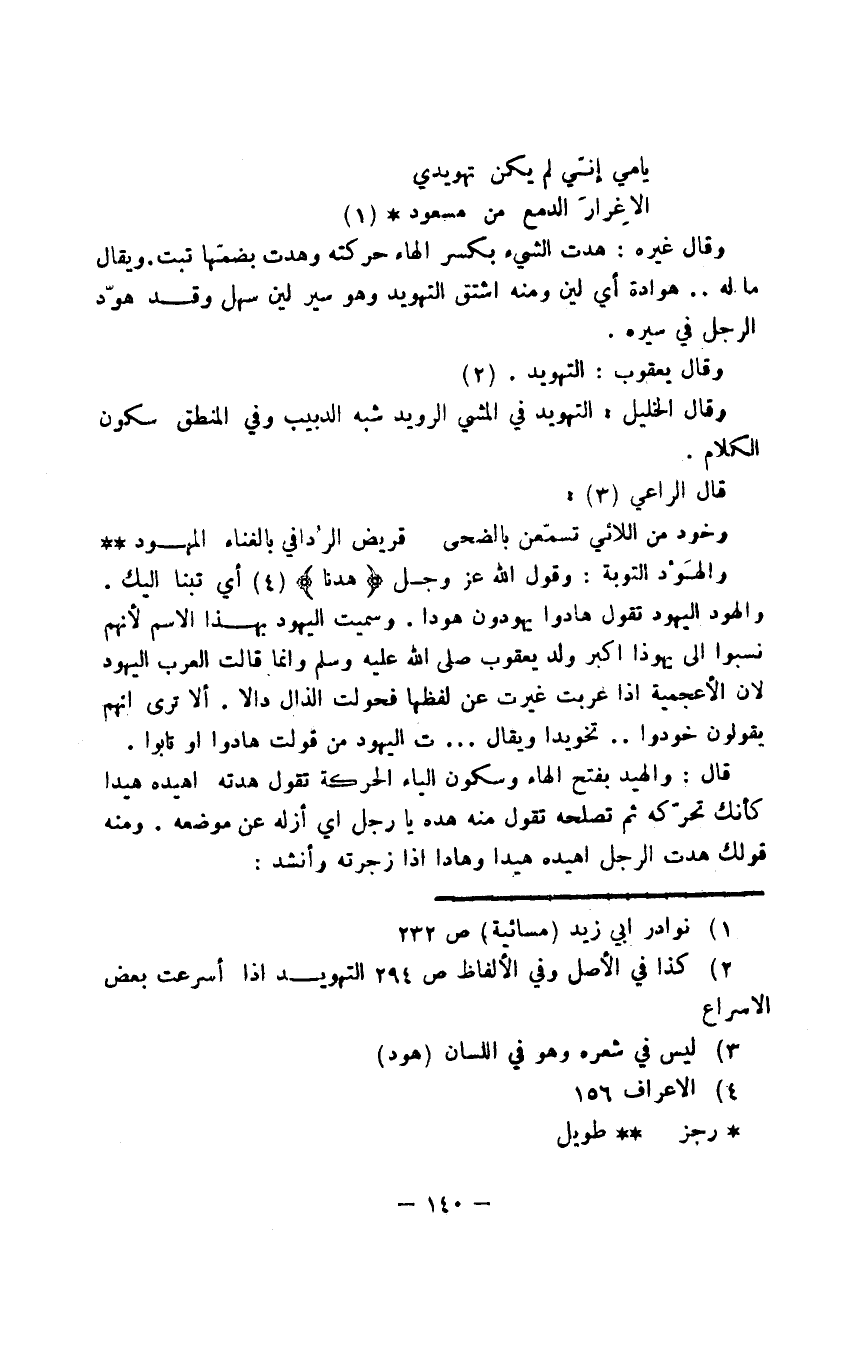 يامي إنتي لم يكن تهويدي
الاِغرارَ الدمع من مسعود * (١)
وقال غيره : هدت الشيء بكسر الهاء حركته وهدت بضمّها تبت. ويقال
ما له .. هوادة أي لين ومنه اشتق التهويد وهو سير لين سهل وقـــد هوّد
الرجل في سيره .
وقال يعقوب : التهويد . (٢)
وقال الخليل : التهويد في المشي الرويد شبه الدبيب وفي المنطق سكون
الكلام .
قال الراعي (٣) :
وخود من اللائي تسمّعن بالضحى قريض الرُدافي بالغناء المهـــود **
والهَوْد التوبة : وقول الله عز وجــل ﴿ هدنا ﴾ (٤) أي تبنا اليك .
والهود اليهود تقول هادوا يهودون هودا . وسميت اليهود بهـــذا الاسم لأنهم
نسبوا الى يهوذا اكبر ولد يعقوب صلى الله عليه وسلم وانما قالت العرب اليهود
لان الأعجمية اذا عربت غيرت عن لفظها فحولت الذال دالا . ألا ترى انهم
يقولون خودوا .. تخويدا ويقال ... ت اليهود من قولت هادوا او تابوا .
قال : والهيد بفتح الهاء وسكون الياء الحركة تقول هدته اهيده هيدا
كأنك تحرّكه ثم تصلحه تقول منه هده يا رجل اي أزله عن موضعه . ومنه
قولك هدت الرجل اهيده هيدا وهادا اذا زجرته وأنشد :
١) نوادر ابي زيد (مسائية) ص ٢٣٢
٢) كذا في الأصل وفي الألفاظ ص ٢٩٤ التهويـــد اذا أسرعت بعض
الاسراع
٣) ليس في شعره وهو في اللسان (هود)
٤) الاعراف ١٥٦
* رجز ** طويل
— ١٤٠ —